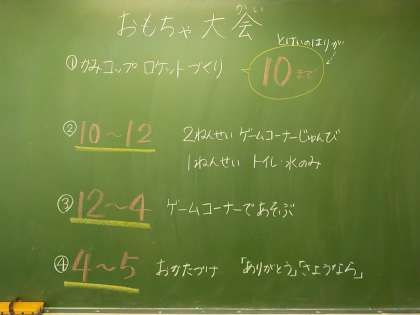 おもちゃ大会
かい
とけいのはりが
①かみコップロケットづくり 10まで
②10～12 2ねんせい ゲームコーナーじゅんび
1ねんせい トイレ・水のみ
③12～4 ゲームコーナーであそぶ
④4～5 おかたづけ 「ありがとう」「さようなら」